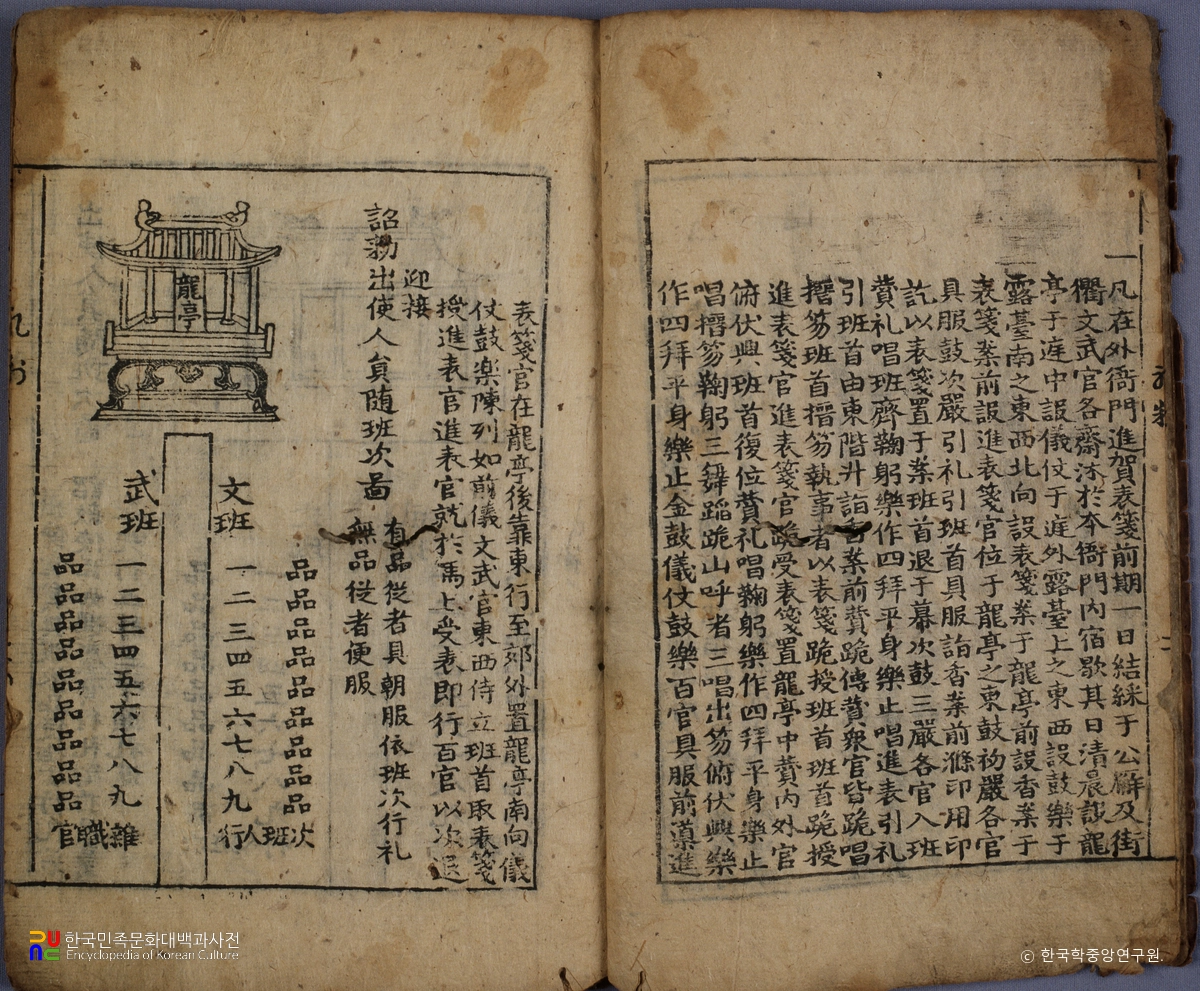 一凡在外衙門進賀表箋前期一日結綵于公廨及街
衢文武官各齋沐於本衙門內宿歇其日清晨設龍
亭于庭中設儀仗于庭外露臺上之東西設鼓樂于
露臺南之東西北向設表箋案于龍亭前設香案于
表箋案前設進表箋官位于龍亭之東鼓初嚴各官
具服鼓次嚴引礼引班首具服詣香案前滌印用印
訖以表箋置于案班首退于幕次鼓三嚴各官入班
賛礼唱班齊鞠躬樂作四拜平身樂止唱進表引礼
引班首由東階升詣香案前賛跪傳賛衆官皆跪唱
搢笏班首搢笏執事者以表箋跪授班首班首跪授
進表箋官進表箋官跪受表箋置龍亭中賛內外官
俯伏興班首復位賛礼唱鞠躬樂作四拜平身樂止
唱搢笏鞠躬三舞蹈跪山呼者三唱出笏俯伏興樂
作四拜平身樂止金鼓儀仗鼓樂百官具服前導進
表箋官在龍亭後靠東行至郊外置龍亭南向儀
仗鼓楽陳列如前儀文武官東西侍立班首取表箋
授進表官進表官就於馬上受表即行百官以次退
迎接
詔勑出使人貟随班次啚
有品従者具朝服依班次行礼
無品従者便服
龍亭
文班
品品品品品品品品品
一二三四五六七八九
行人班次
武班
一二三四五六七八九
品品品品品品品品品
官職雜
한국민족문화대백과사전
Encyclopedia of Korean Culture
ⓒ 한국학중앙연구원.